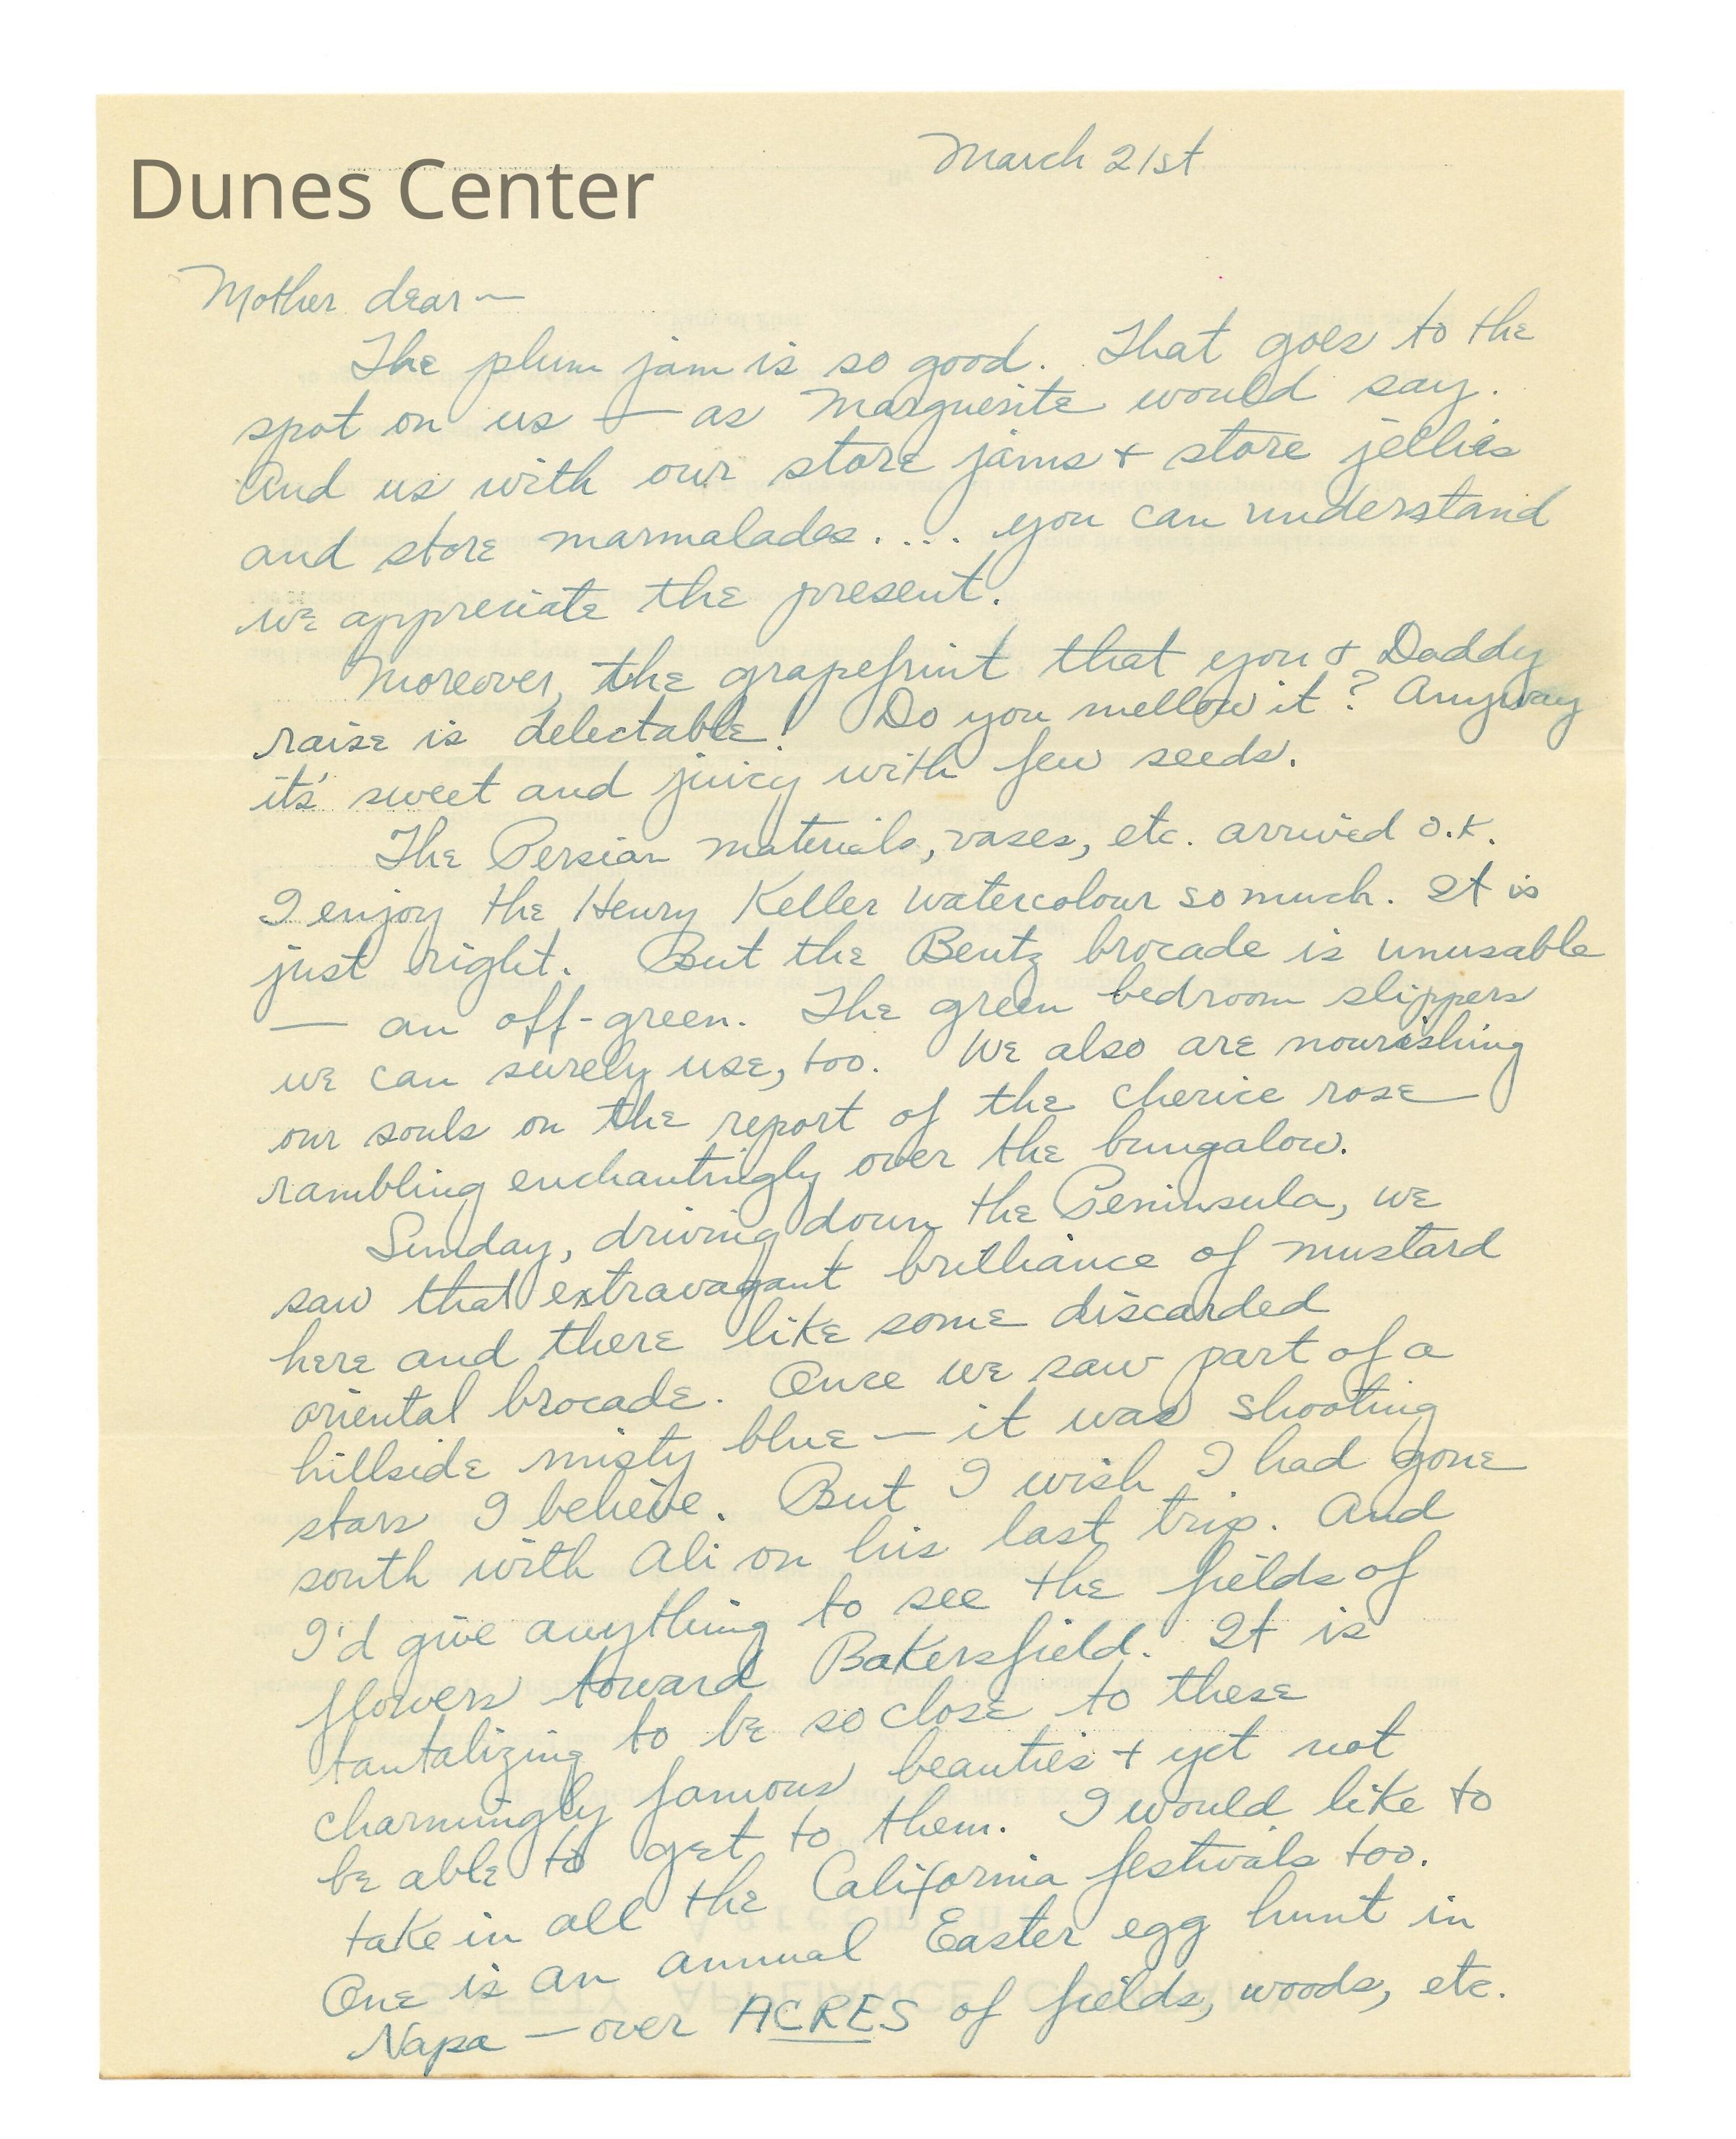 March 21st
Dunes Center
Mother dear —
The plum jam is so good. That goes to the
spot on us — as Marguerite would say.
And us with our store jams + store jellies
and store marmalades.... you can understand
we appreciate the present.
Moreover, the grapefruit that you & Daddy
raise is delectable! Do you mellow it? Anyway
it's sweet and juicy with few seeds.
The Persian materials, vases, etc. arrived o.k.
I enjoy the Henry Keller watercolour so much. It is
just right. But the Bentz brocade is unusable
— an off-green. The green bedroom slippers
we can surely use, too. We also are nourishing
our souls on the report of the cherice rose
rambling enchantingly over the bungalow.
Sunday, driving down the Peninsula, we
saw that extravagant brilliance of mustard
here and there like some discarded
oriental brocade. Once we saw part of a
hillside misty blue — it was shooting
stars I believe. But I wish I had gone
south with Ali on his last trip. And
I'd give anything to see the fields of
flowers toward Bakersfield. It is
tantalizing to be so close to these
charmingly famous beauties + yet not
be able to get to them. I would like to
take in all the California festivals too.
One is an annual Easter egg hunt in
Napa — over ACRES of fields, woods, etc.